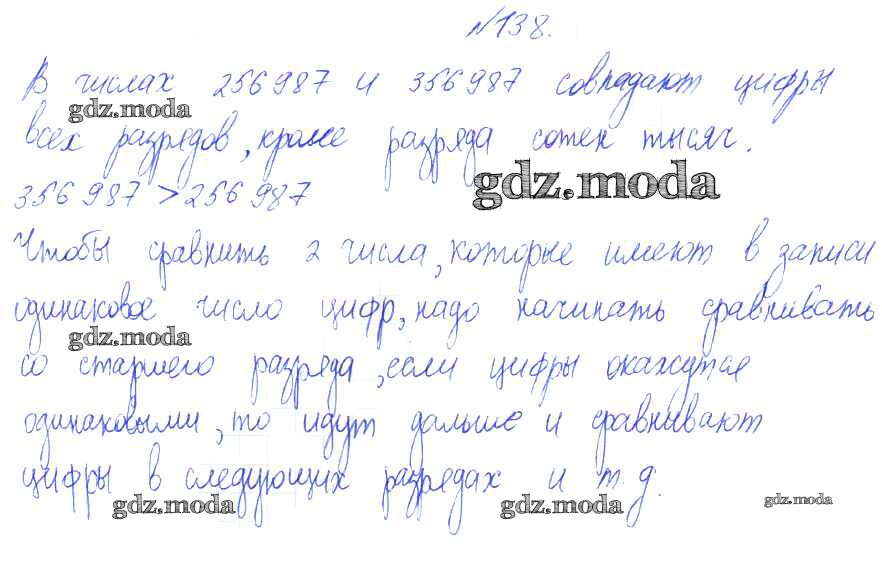 №138.
В числах 256987 и 356987 совпадают цифры
gdz.moda
всех разрядов, кроме разряда сотен тысяч.
gdz.moda
356987 > 256987
Чтобы сравнить 2 числа, которые имеют в записи
одинаковое число цифр, надо начинать сравнивать
gdz.moda
со старшего разряда, если цифры окажутся
одинаковыми, то идут дальше и сравнивают
цифры в следующих разрядах и т.д.
gdz.moda gdz.moda gdz.moda